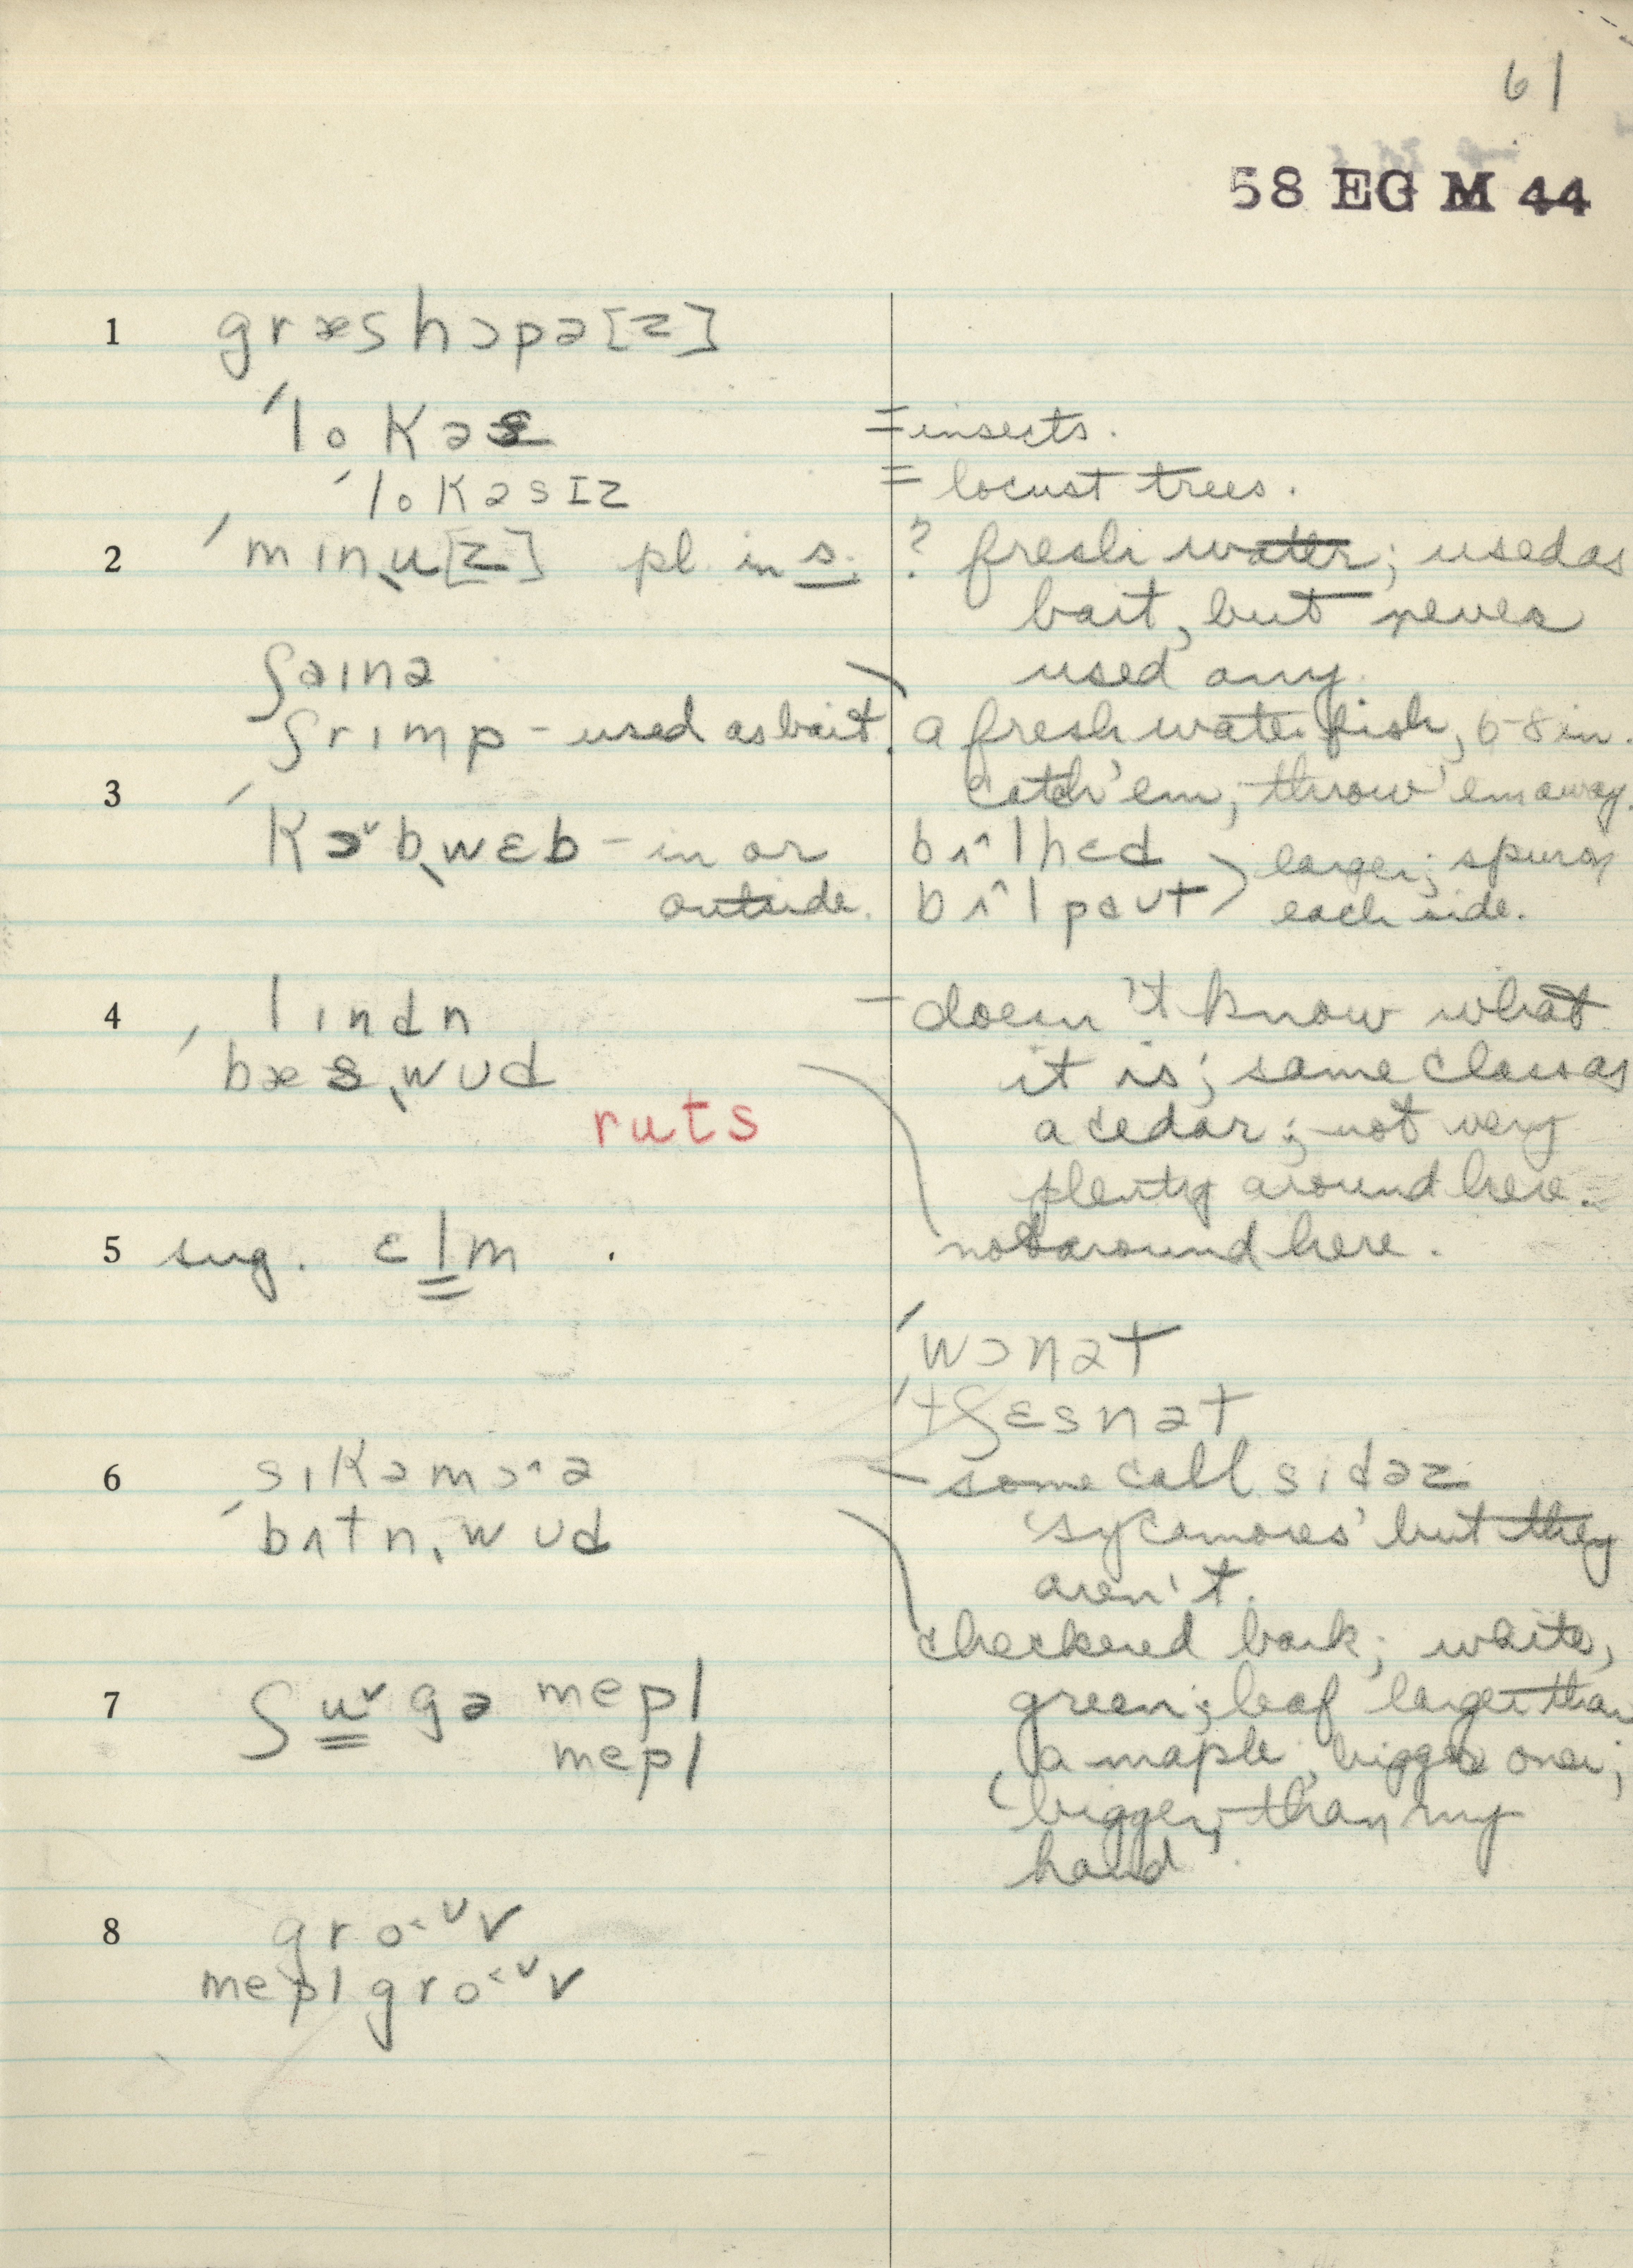 61
58 EG M 44
1 græshɔpə[z]
ˈloKəs = insects.
ˈloKəsIz = locust trees.
2 ˈmɪnˌu[z] pl. in s. ? fresh water; used as
bait, but never
ʃaɪnə used any.
ʃrɪmp - used as bait. a fresh water fish, 6-8 in.
3 catch 'em, throw 'em away.
ˈKɔ˅bˌwɛb - in or bʌ^lhɛd larger; spur on
outside. bʌ^lpaʊt each side.
4 lɪndn - doesn't know what
ˈbæsˌwʊd it is; same class as
ruts a cedar; not very
plenty around here.
5 sug. ɛlm . not around here.
ˈwɔnət
ˈtʃɛsnət
6 sɪKəmɔ^ə - some call sidəz
ˈbʌtnˌwʊd 'sycamores' but they
aren't.
checkered bark; white,
7 ʃu˅gə mepl green; leaf larger than
mepl a maple, bigger one;
'bigger than my
hand'.
8 gro<ʊv
mepl gro<ʊv